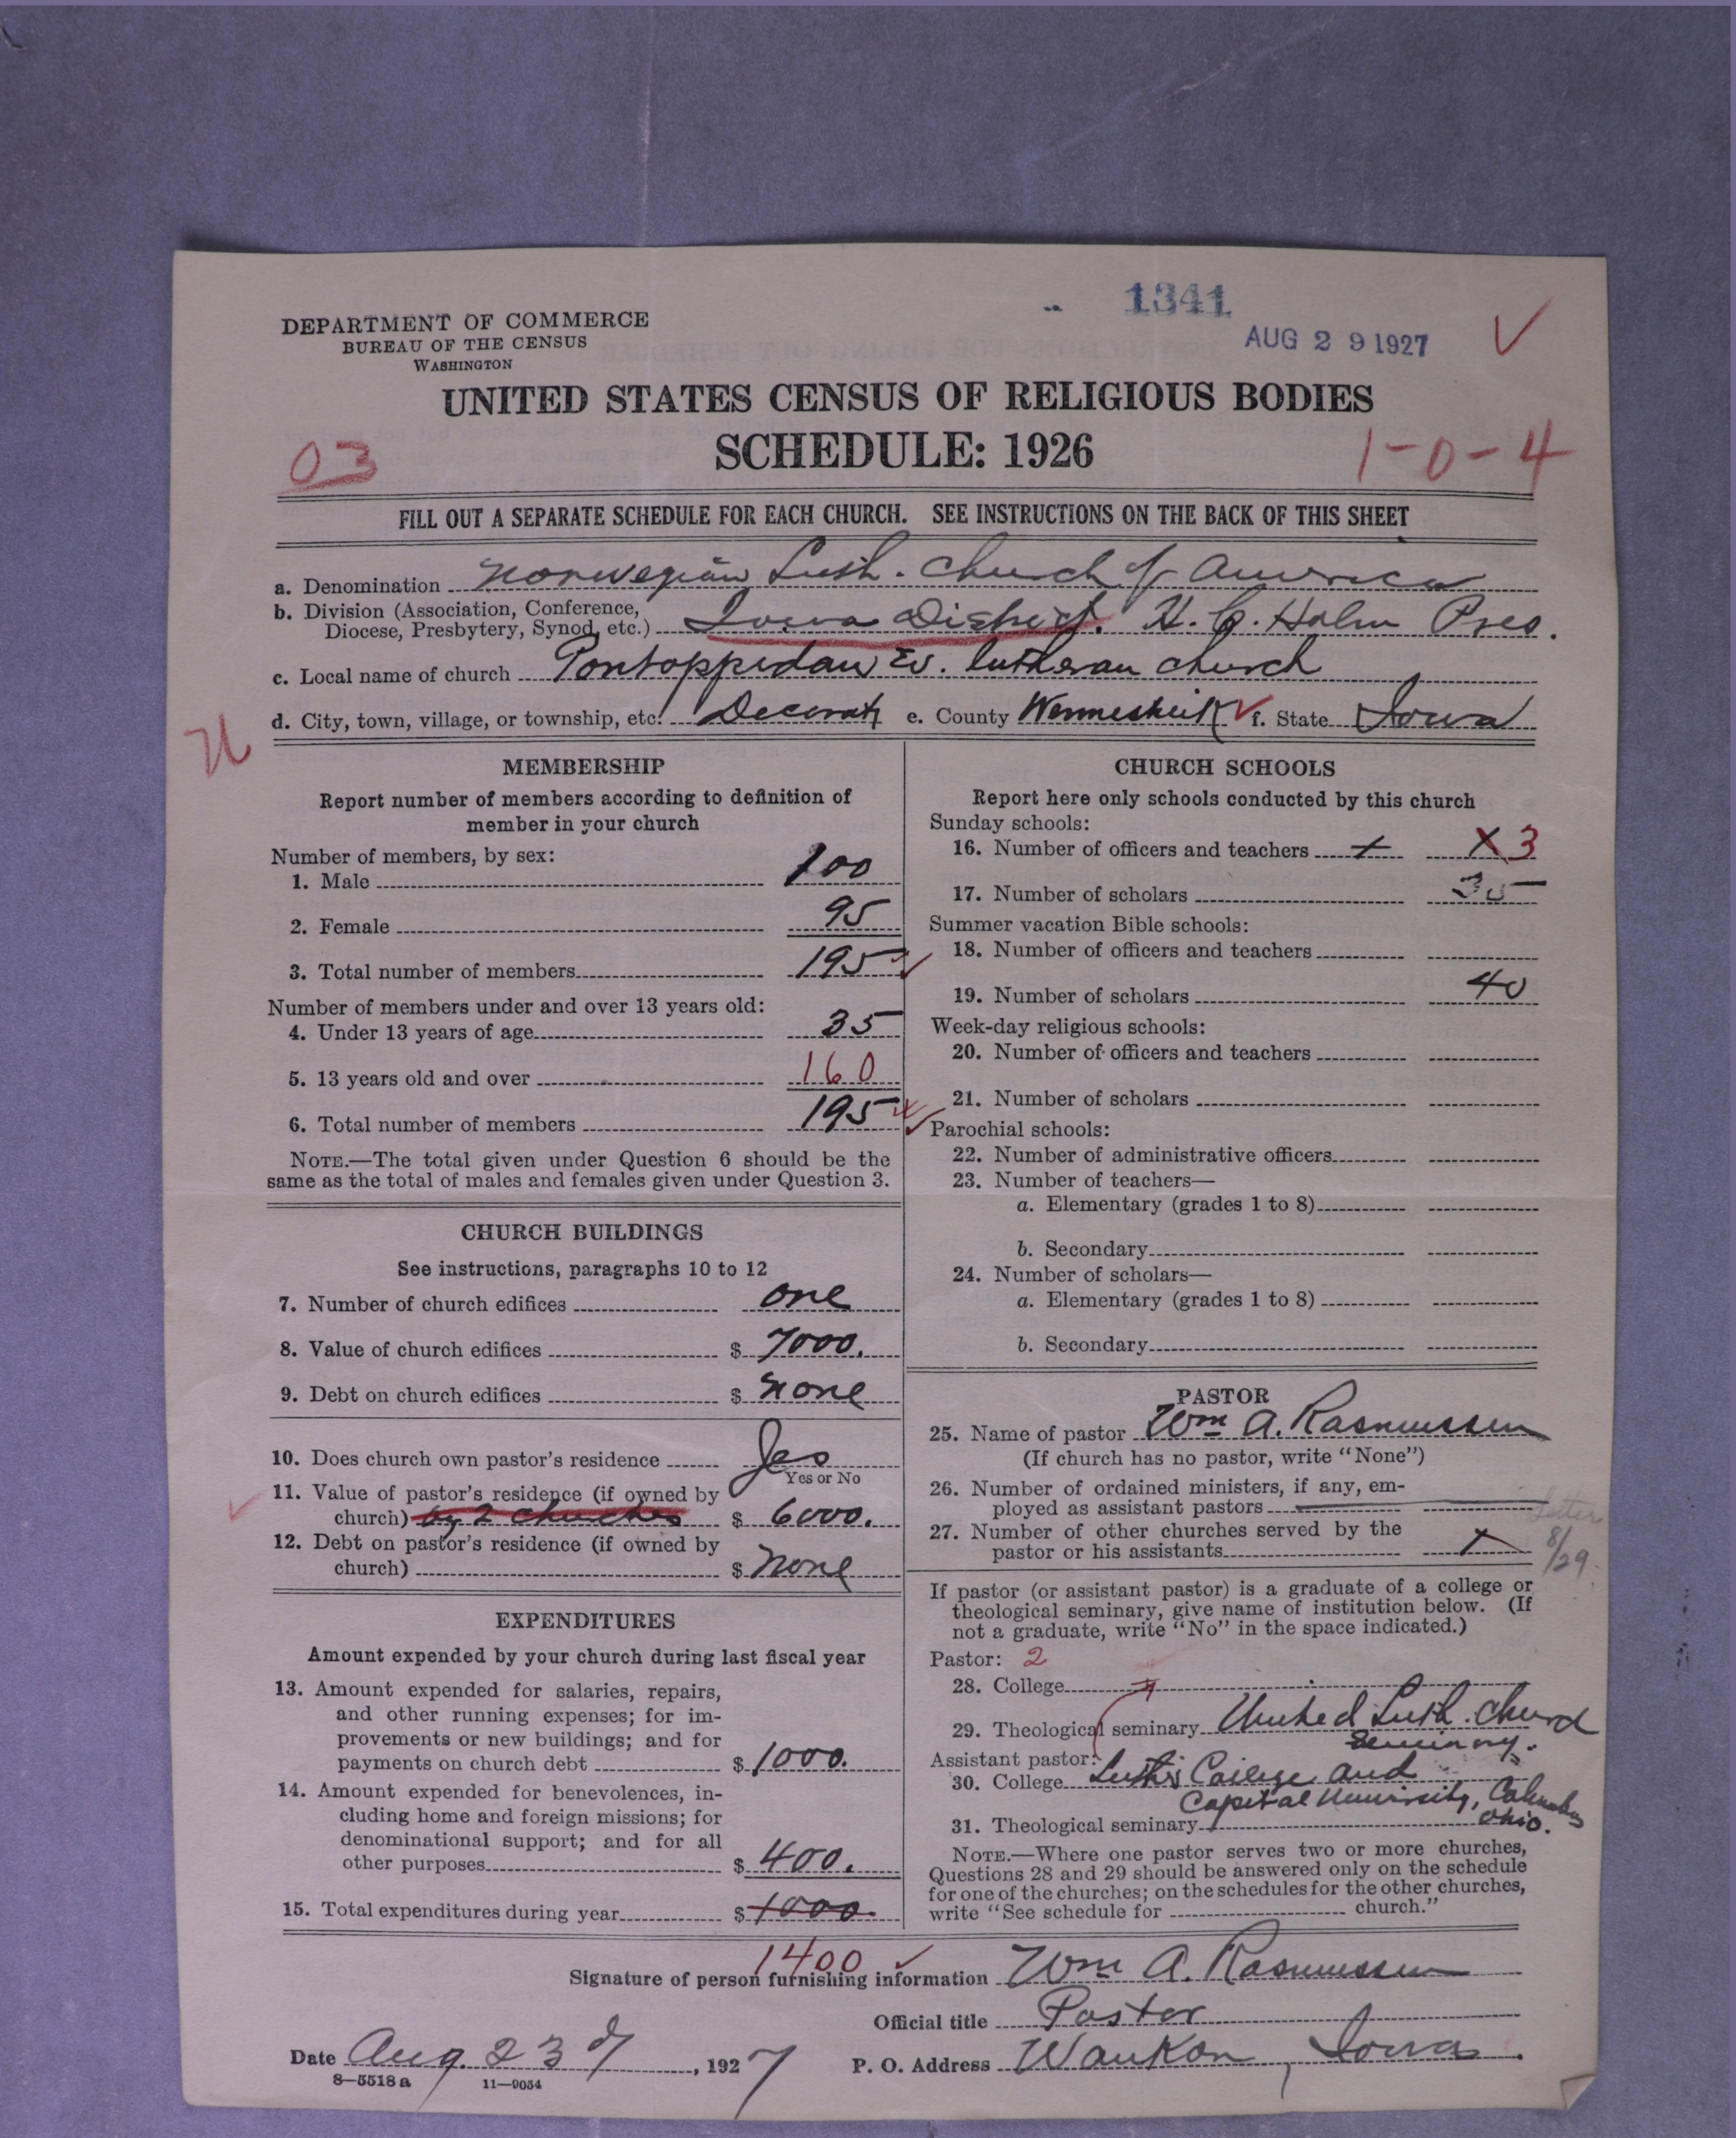 1341
AUG 29 1927
DEPARTMENT OF COMMERCE
BUREAU OF THE CENSUS
WASHINGTON
UNITED STATES CENSUS OF RELIGIOUS BODIES
SCHEDULE: 1926
03
1-0-4
FILL OUT A SEPARATE SCHEDULE FOR EACH CHURCH. SEE INSTRUCTIONS ON THE BACK OF THIS SHEET
a. Denomination Norwegian Luth. Church of America
b. Division (Association, Conference,
Diocese, Presbytery, Synod, etc.) Iowa District. H. C. Holm Pres.
c. Local name of church Pontoppidan Ev. lutheran church
d. City, town, village, or township, etc. Decorah e. County Wennesheik f. State Iowa
MEMBERSHIP
Report number of members according to definition of
member in your church
Number of members, by sex:
1. Male 100
2. Female 95
3. Total number of members 195
Number of members under and over 13 years old:
4. Under 13 years of age 35
5. 13 years old and over 160
6. Total number of members 195
NOTE.—The total given under Question 6 should be the
same as the total of males and females given under Question 3.
CHURCH BUILDINGS
See instructions, paragraphs 10 to 12
7. Number of church edifices one
8. Value of church edifices $ 7000.
9. Debt on church edifices $ none
10. Does church own pastor's residence Yes
Yes or No
11. Value of pastor's residence (if owned by
church) by 2 churches $ 6000.
12. Debt on pastor's residence (if owned by
church) $ none
EXPENDITURES
Amount expended by your church during last fiscal year
13. Amount expended for salaries, repairs,
and other running expenses; for im-
provements or new buildings; and for
payments on church debt $ 1000.
14. Amount expended for benevolences, in-
cluding home and foreign missions; for
denominational support; and for all
other purposes $ 400.
15. Total expenditures during year $ 1000.
1400
CHURCH SCHOOLS
Report here only schools conducted by this church
Sunday schools:
16. Number of officers and teachers X 3
17. Number of scholars 35
Summer vacation Bible schools:
18. Number of officers and teachers
19. Number of scholars 40
Week-day religious schools:
20. Number of officers and teachers
21. Number of scholars
Parochial schools:
22. Number of administrative officers
23. Number of teachers—
a. Elementary (grades 1 to 8)
b. Secondary
24. Number of scholars—
a. Elementary (grades 1 to 8)
b. Secondary
PASTOR
25. Name of pastor Wm A. Rasmussen
(If church has no pastor, write "None")
26. Number of ordained ministers, if any, em-
ployed as assistant pastors
Letter
27. Number of other churches served by the
pastor or his assistants
8/29.
If pastor (or assistant pastor) is a graduate of a college or
theological seminary, give name of institution below. (If
not a graduate, write "No" in the space indicated.)
Pastor: 2
28. College
29. Theological seminary United Luth. Church
Seminary.
Assistant pastor:
30. College Luther College and
Capital University, Columbus
Ohio.
31. Theological seminary
NOTE.—Where one pastor serves two or more churches,
Questions 28 and 29 should be answered only on the schedule
for one of the churches; on the schedules for the other churches,
write "See schedule for church."
Signature of person furnishing information Wm A. Rasmussen
Official title Pastor
Date Aug. 23d, 1927 P. O. Address Waukon, Iowa.
8—5518a 11—9054